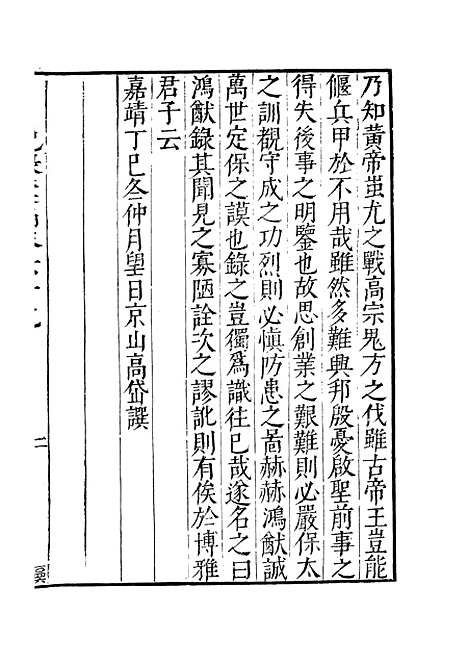 乃知黄帝蚩尤之戰高宗鬼方之伐雖古帝王豈能
偃兵甲於不用哉雖然多難興邦殷憂啟聖前事之
得失後事之明鑒也故思創業之艱難則必嚴保太
之訓觀守成之功烈則必慎防患之啚赫赫鴻猷誠
萬世定保之謨也錄之豈獨爲識往已哉遂名之曰
鴻猷錄其聞見之寡陋詮次之謬訛則有俟於博雅
君子云
嘉靖丁巳冬仲月望日京山高岱譔
二